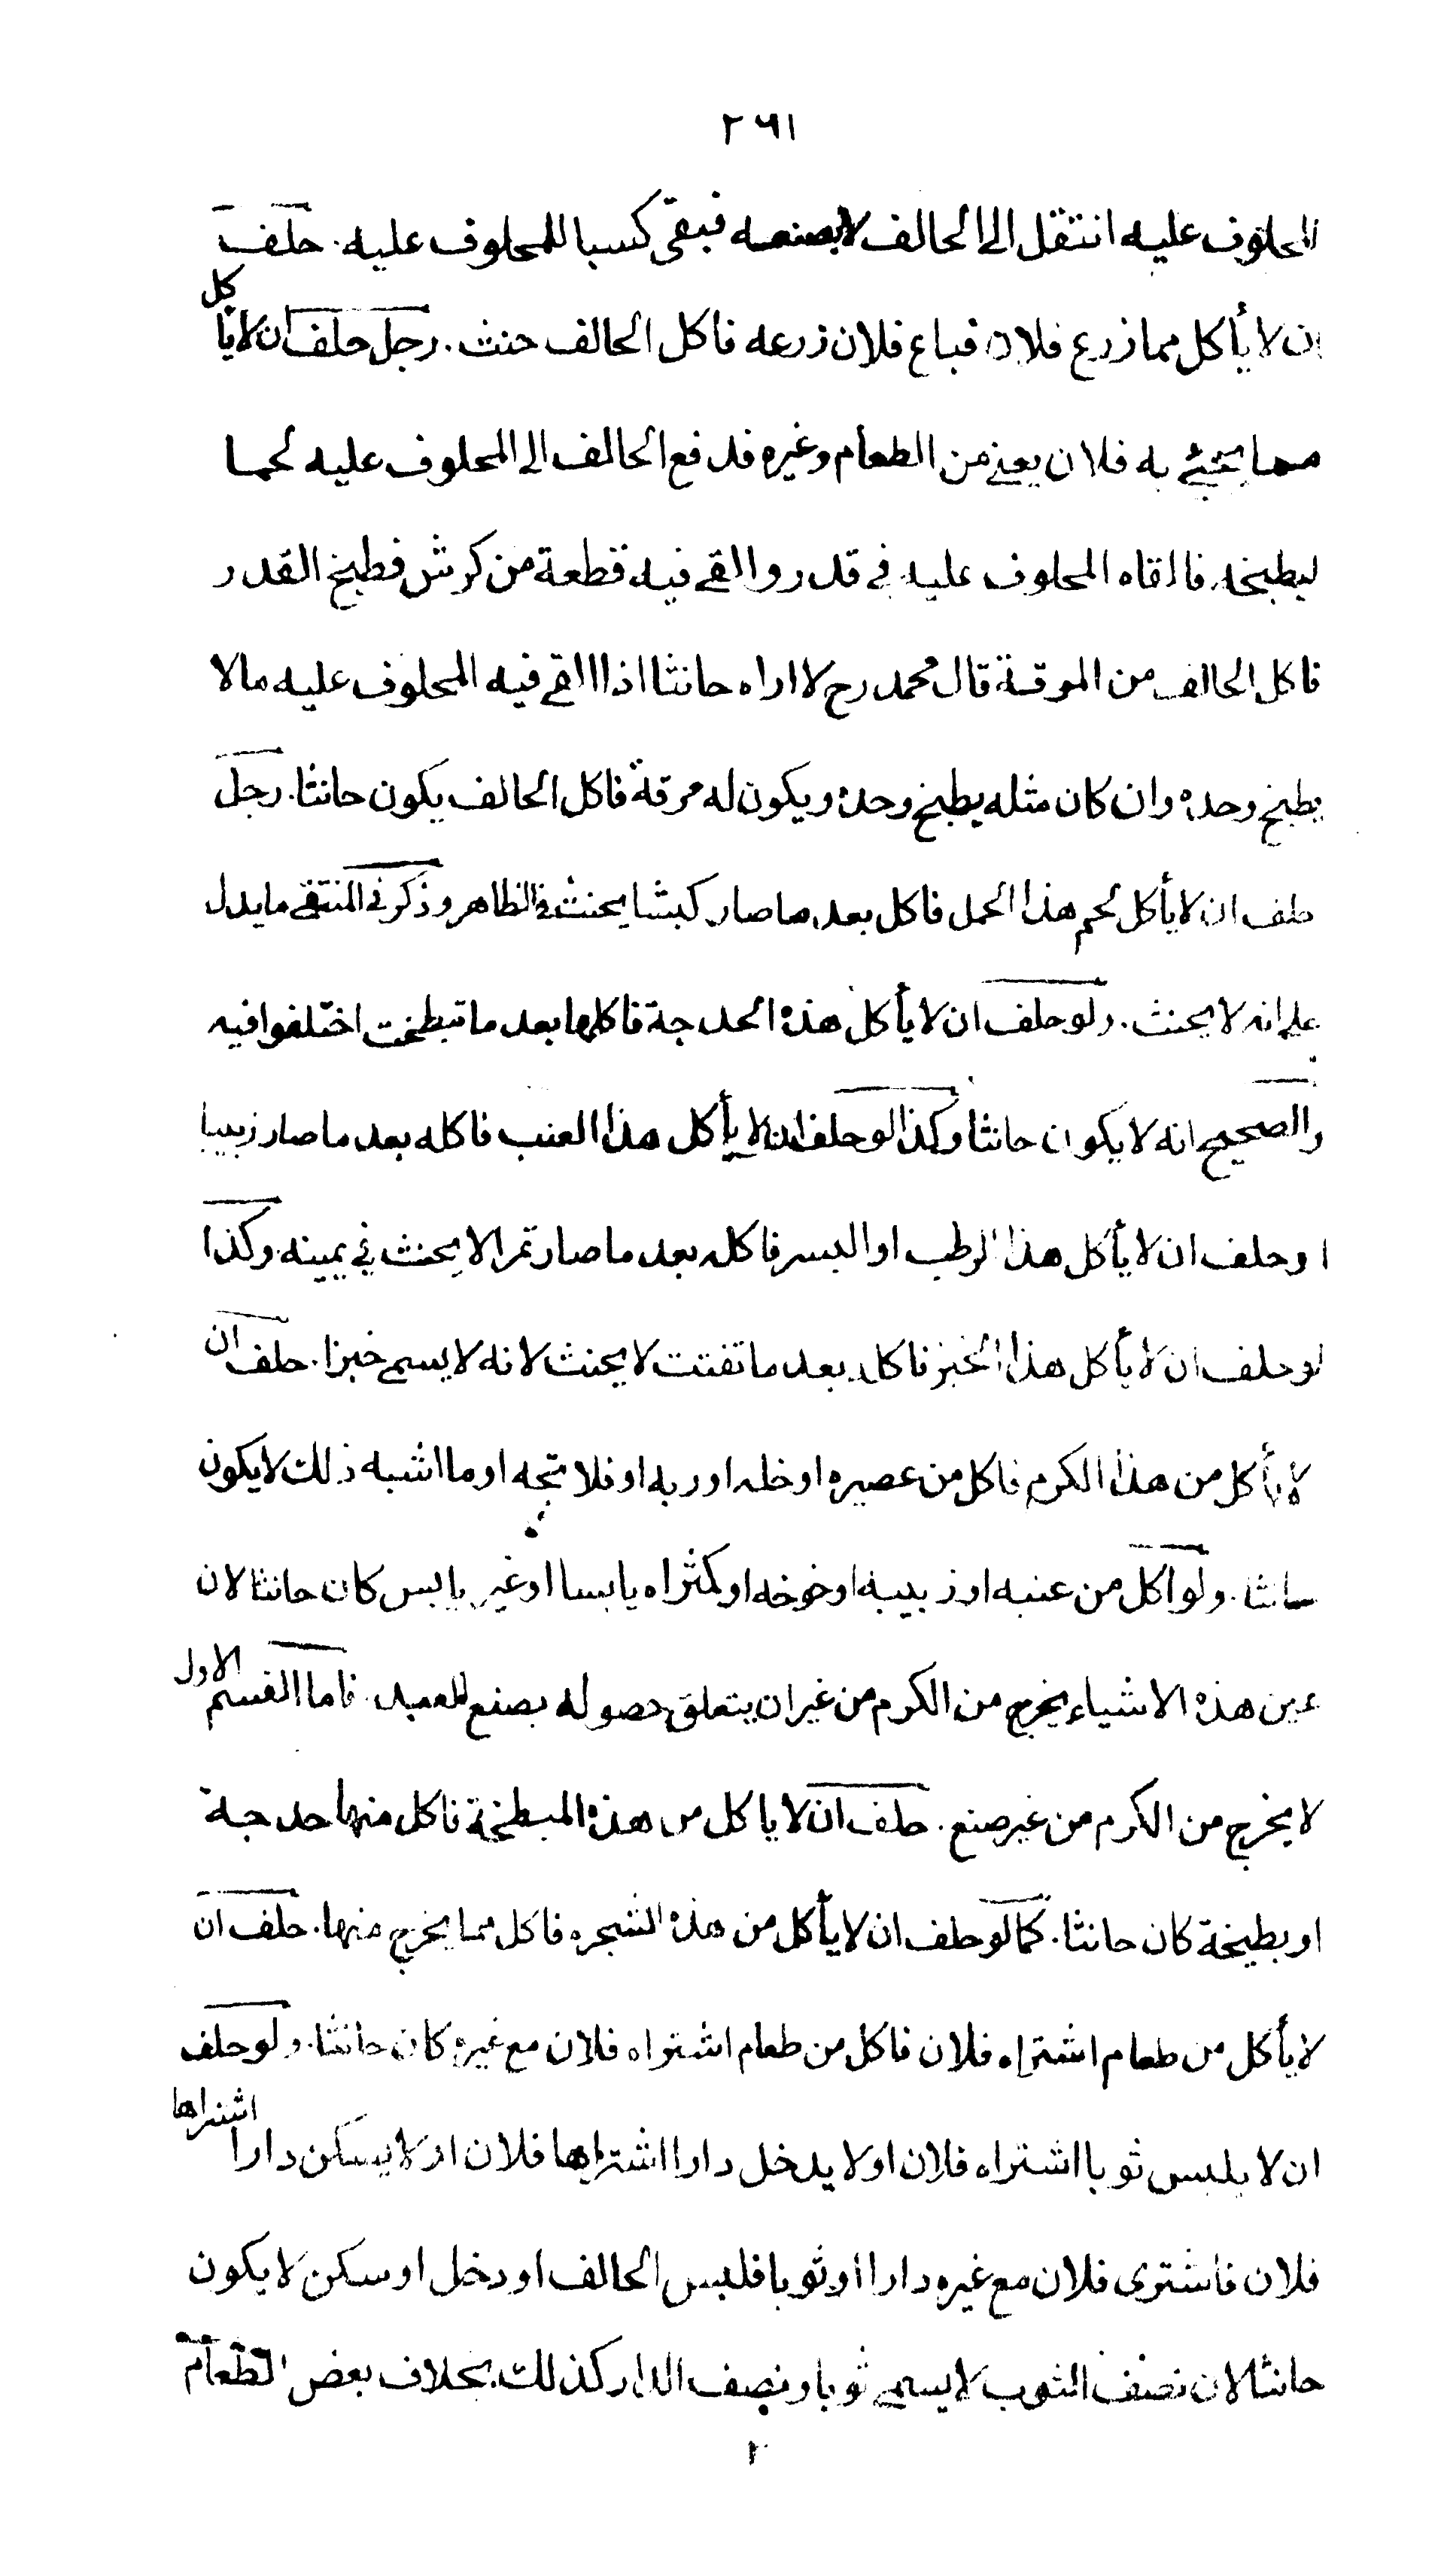 ٢٦١
المحلوف عليه انتقل الى الحالف لا بصنعه فبقى كسبا للمحلوف عليه . حلف
ان لا يأكل مما زرع فلان فباع فلان زرعه فاكل الحالف حنث . رجل حلف ان لا يأكل
مما يجئ به فلان يعني من الطعام وغيره فدفع الحالف الى المحلوف عليه لحما
ليطبخه فالقاه المحلوف عليه في قدر والقى فيه قطعة من كرش فطبخ القدر
فاكل الحالف من المرقة قال محمد رح لا اراه حانثا اذا القى فيه المحلوف عليه ما لا
يطبخ وحده وان كان مثله يطبخ وحده ويكون له مرقة فاكل الحالف يكون حانثا . رجل
حلف ان لا يأكل لحم هذا الحمل فاكل بعد ما صار كبشا يحنث في الظاهر وذكر في المنتقى ما يدل
على انه لا يحنث . ولو حلف ان لا يأكل هذه الحدجة فاكلها بعد ما تبطخت اختلفوا فيه
والصحيح انه لا يكون حانثا وكذا لو حلف ان لا يأكل هذا العنب فاكله بعد ما صار زبيبا
او حلف ان لا يأكل هذا الرطب او البسر فاكله بعد ما صار تمرا لا يحنث في يمينه . وكذا
لو حلف ان لا يأكل هذا الخبز فاكله بعد ما تفتت لا يحنث لانه لا يسمى خبزا . حلف ان
لا يأكل من هذا الكرم فاكل من عصيره او خله او ربه او فلا تجه او ما اشبه ذلك لا يكون
حانثا . ولو اكل من عنبه او زبيبه او خوخه او كمثراه يابسا او غير يابس كان حانثا لان
عين هذه الاشياء يخرج من الكرم من غير ان يتعلق حصوله بصنع للعبد . فاما القسم الاول
لا يخرج من الكرم من غير صنع . حلف ان لا ياكل من هذه المبطخة فاكل منها حدجة
او بطيخة كان حانثا . كما لو حلف ان لا يأكل من هذه الشجره فاكل مما يخرج منها . حلف ان
لا يأكل من طعام اشتراه فلان فاكل من طعام اشتراه فلان مع غيره كان حانثا . ولو حلف
ان لا يلبس ثوبا اشتراه فلان او لا يدخل دارا اشتراها فلان او لا يسكن دارا اشتراها
فلان فاشترى فلان مع غيره دارا او ثوبا فلبس الحالف او دخل او سكن لا يكون
حانثا لان نصف الثوب لا يسمى ثوبا ونصف الدار كذلك . بخلاف بعض الطعام